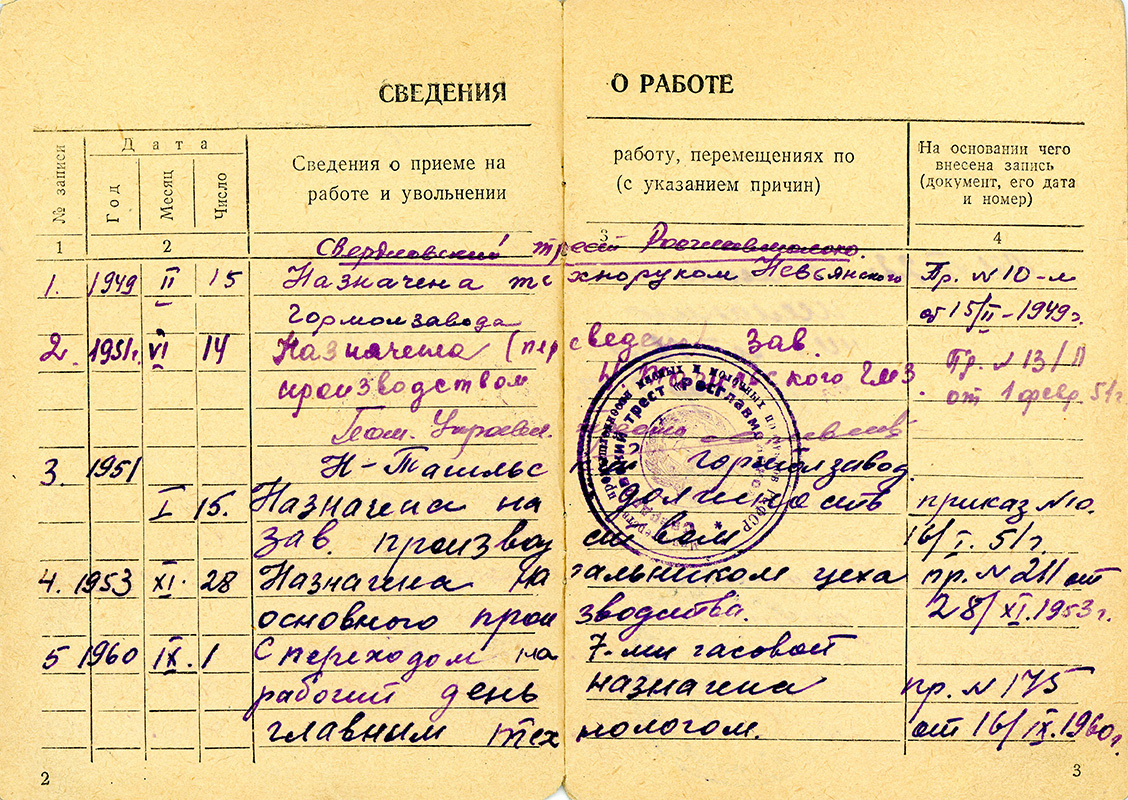 СВЕДЕНИЯ О РАБОТЕ
№ записи
Дата
Год
Месяц
Число
Сведения о приеме на работу, перемещениях по
работе и увольнении (с указанием причин)
На основании чего
внесена запись
(документ, его дата
и номер)
1 2 3 4
Свердловский трест Росглавмолоко.
1. 1949 II 15 Назначена техноруком Невьянского Пр. № 10-м
гормолзавода от 15/II-1949г.
2. 1951г. VI 14 Назначена (пер сведена зав. Пр. № 13/Л
производством Н-Тагильского ГМЗ. от 1 февр. 51г.
3. 1951 Н-Тагильский гормолзавод
I 15. Назначена на должность приказ № 10.
зав. производством 16/I. 51г.
4. 1953 XI. 28 Назначена начальником цеха пр. № 211 от
основного производства. 28/XI.1953г.
5 1960 IX. 1 С переходом на 7-ми часовой
рабочий день назначена пр. № 175
главным технологом. от 16/IX.1960г.
трест "Росглавмолоко"
2
3